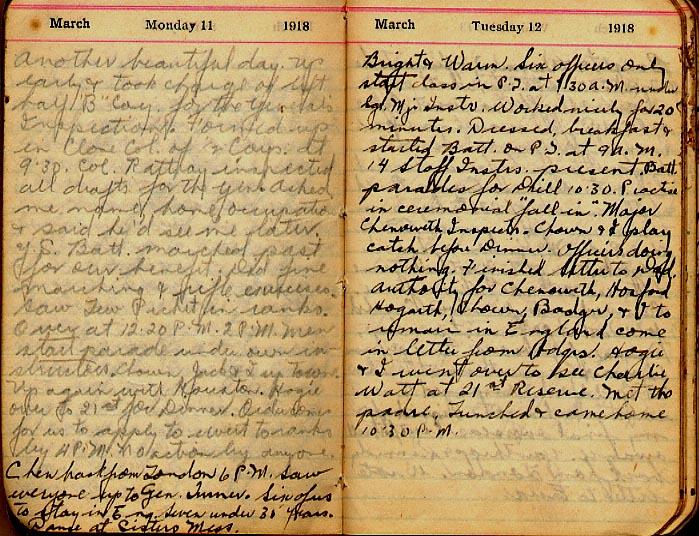 March Monday 11 1918
Another beautiful day. Up
early & took charge of left
half "B" Coy. for the Generals
Inspection. Formed up
in Close Col. of Coys. at
9.30. Col. Rattray inspected
all drafts for the Gen. Asked
me name, home, occupation
& said he'd see me later.
Batt. marched past
for our benefit. Did fine
marching & rifle exercises.
Saw Lew Pickett in ranks.
Over at 12.20 P.M. 2 P.M. men
start parade under own in-
structors. Chown, Jack & I up town.
Up again with Houston. Hogie
over to 21st for Dinner. Order comes
for us to apply to revert to ranks
by 4 P.M. No action by anyone.
Chen back from London 6 P.M. Saw
everyone up to Gen. Turner. Six of us
to stay in Eng. Seven under 30 years.
Dance at Sisters Mess.
March Tuesday 12 1918
Bright & Warm. Six officers only
staff class in P.T. at 7.30 A.M. under
Sgt. Mj. Instr. Worked nicely for 20
minutes. Dressed, breakfast &
started Batt. on P.T. at 9 A.M.
14 Staff Instrs. present. Batt
parades for Drill 10:30. Practise
in ceremonial "fall in". Major
Chenowith Inspects. Chown & I play
catch before Dinner. Officers doing
nothing. Finished letter to Dad.
authority for Chenowith, Hosford
Hogarth, Chown, Badger, & I to
remain in England come
in letter from Hdqrs. Hogie
& I went over to see Charlie
Watt at 21st Reserve. Met the
padre, Lunched & came home
10:30 P.M.